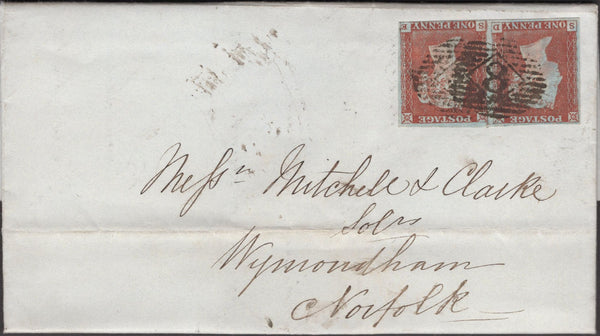 POSTAGE
POSTAGE
ONE PENNY
ONE PENNY
S E
S D
Messrs Mitchell & Clarke
Solrs
Wymondham
Norfolk